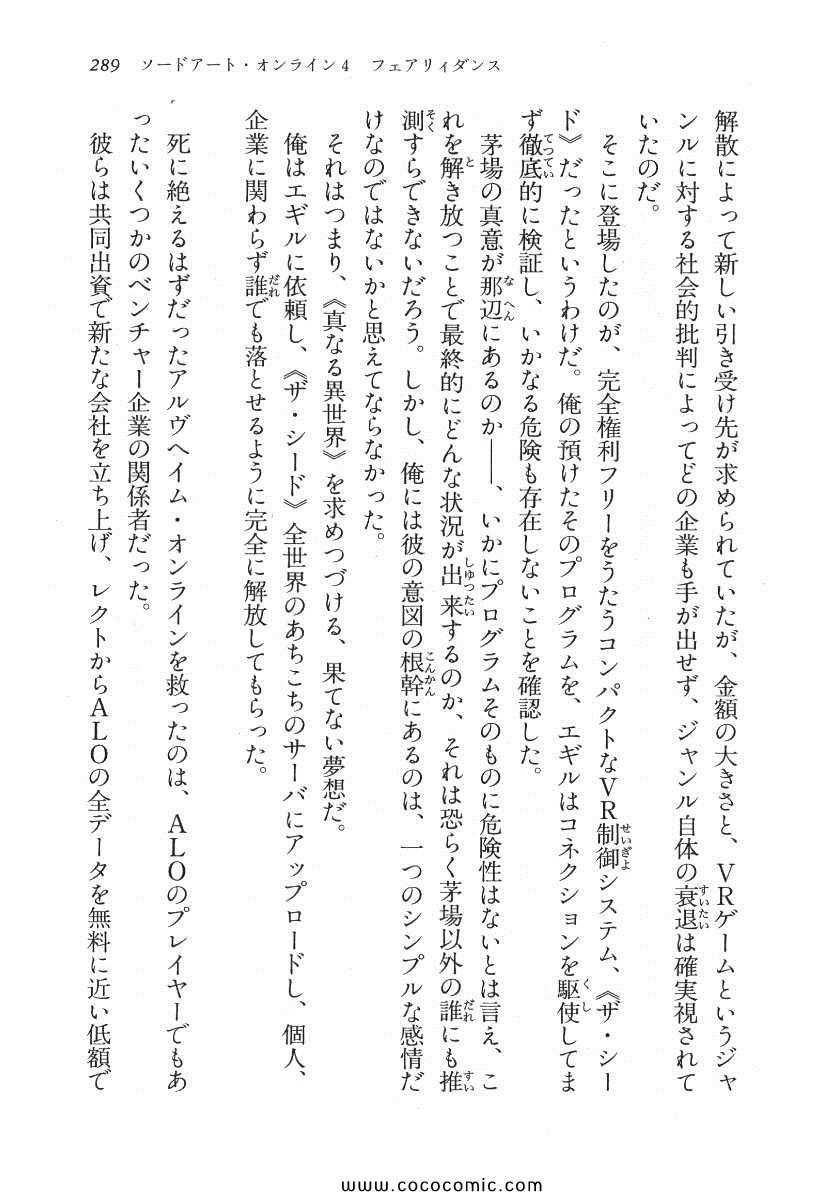 289　ソードアート・オンライン4　フェアリィダンス
解散によって新しい引き受け先が求められていたが、金額の大きさと、VRゲームというジャ
ンルに対する社会的批判によってどの企業も手が出せず、ジャンル自体の衰退は確実視されて
いたのだ。
　そこに登場したのが、完全権利フリーをうたうコンパクトなVR制御システム、《ザ・シー
ド》だったというわけだ。俺の預けたそのプログラムを、エギルはコネクションを駆使してま
ず徹底的に検証し、いかなる危険も存在しないことを確認した。
　茅場の真意が那辺にあるのか――、いかにプログラムそのものに危険性はないとは言え、こ
れを解き放つことで最終的にどんな状況が出来するのか、それは恐らく茅場以外の誰にも推
測すらできないだろう。しかし、俺には彼の意図の根幹にあるのは、一つのシンプルな感情だ
けなのではないかと思えてならなかった。
　それはつまり、《真なる異世界》を求めつづける、果てない夢想だ。
　俺はエギルに依頼し、《ザ・シード》全世界のあちこちのサーバにアップロードし、個人、
企業に関わらず誰でも落とせるように完全に解放してもらった。
　死に絶えるはずだったアルヴヘイム・オンラインを救ったのは、ALOのプレイヤーでもあ
ったいくつかのベンチャー企業の関係者だった。
　彼らは共同出資で新たな会社を立ち上げ、レクトからALOの全データを無料に近い低額で
www.cococomic.com